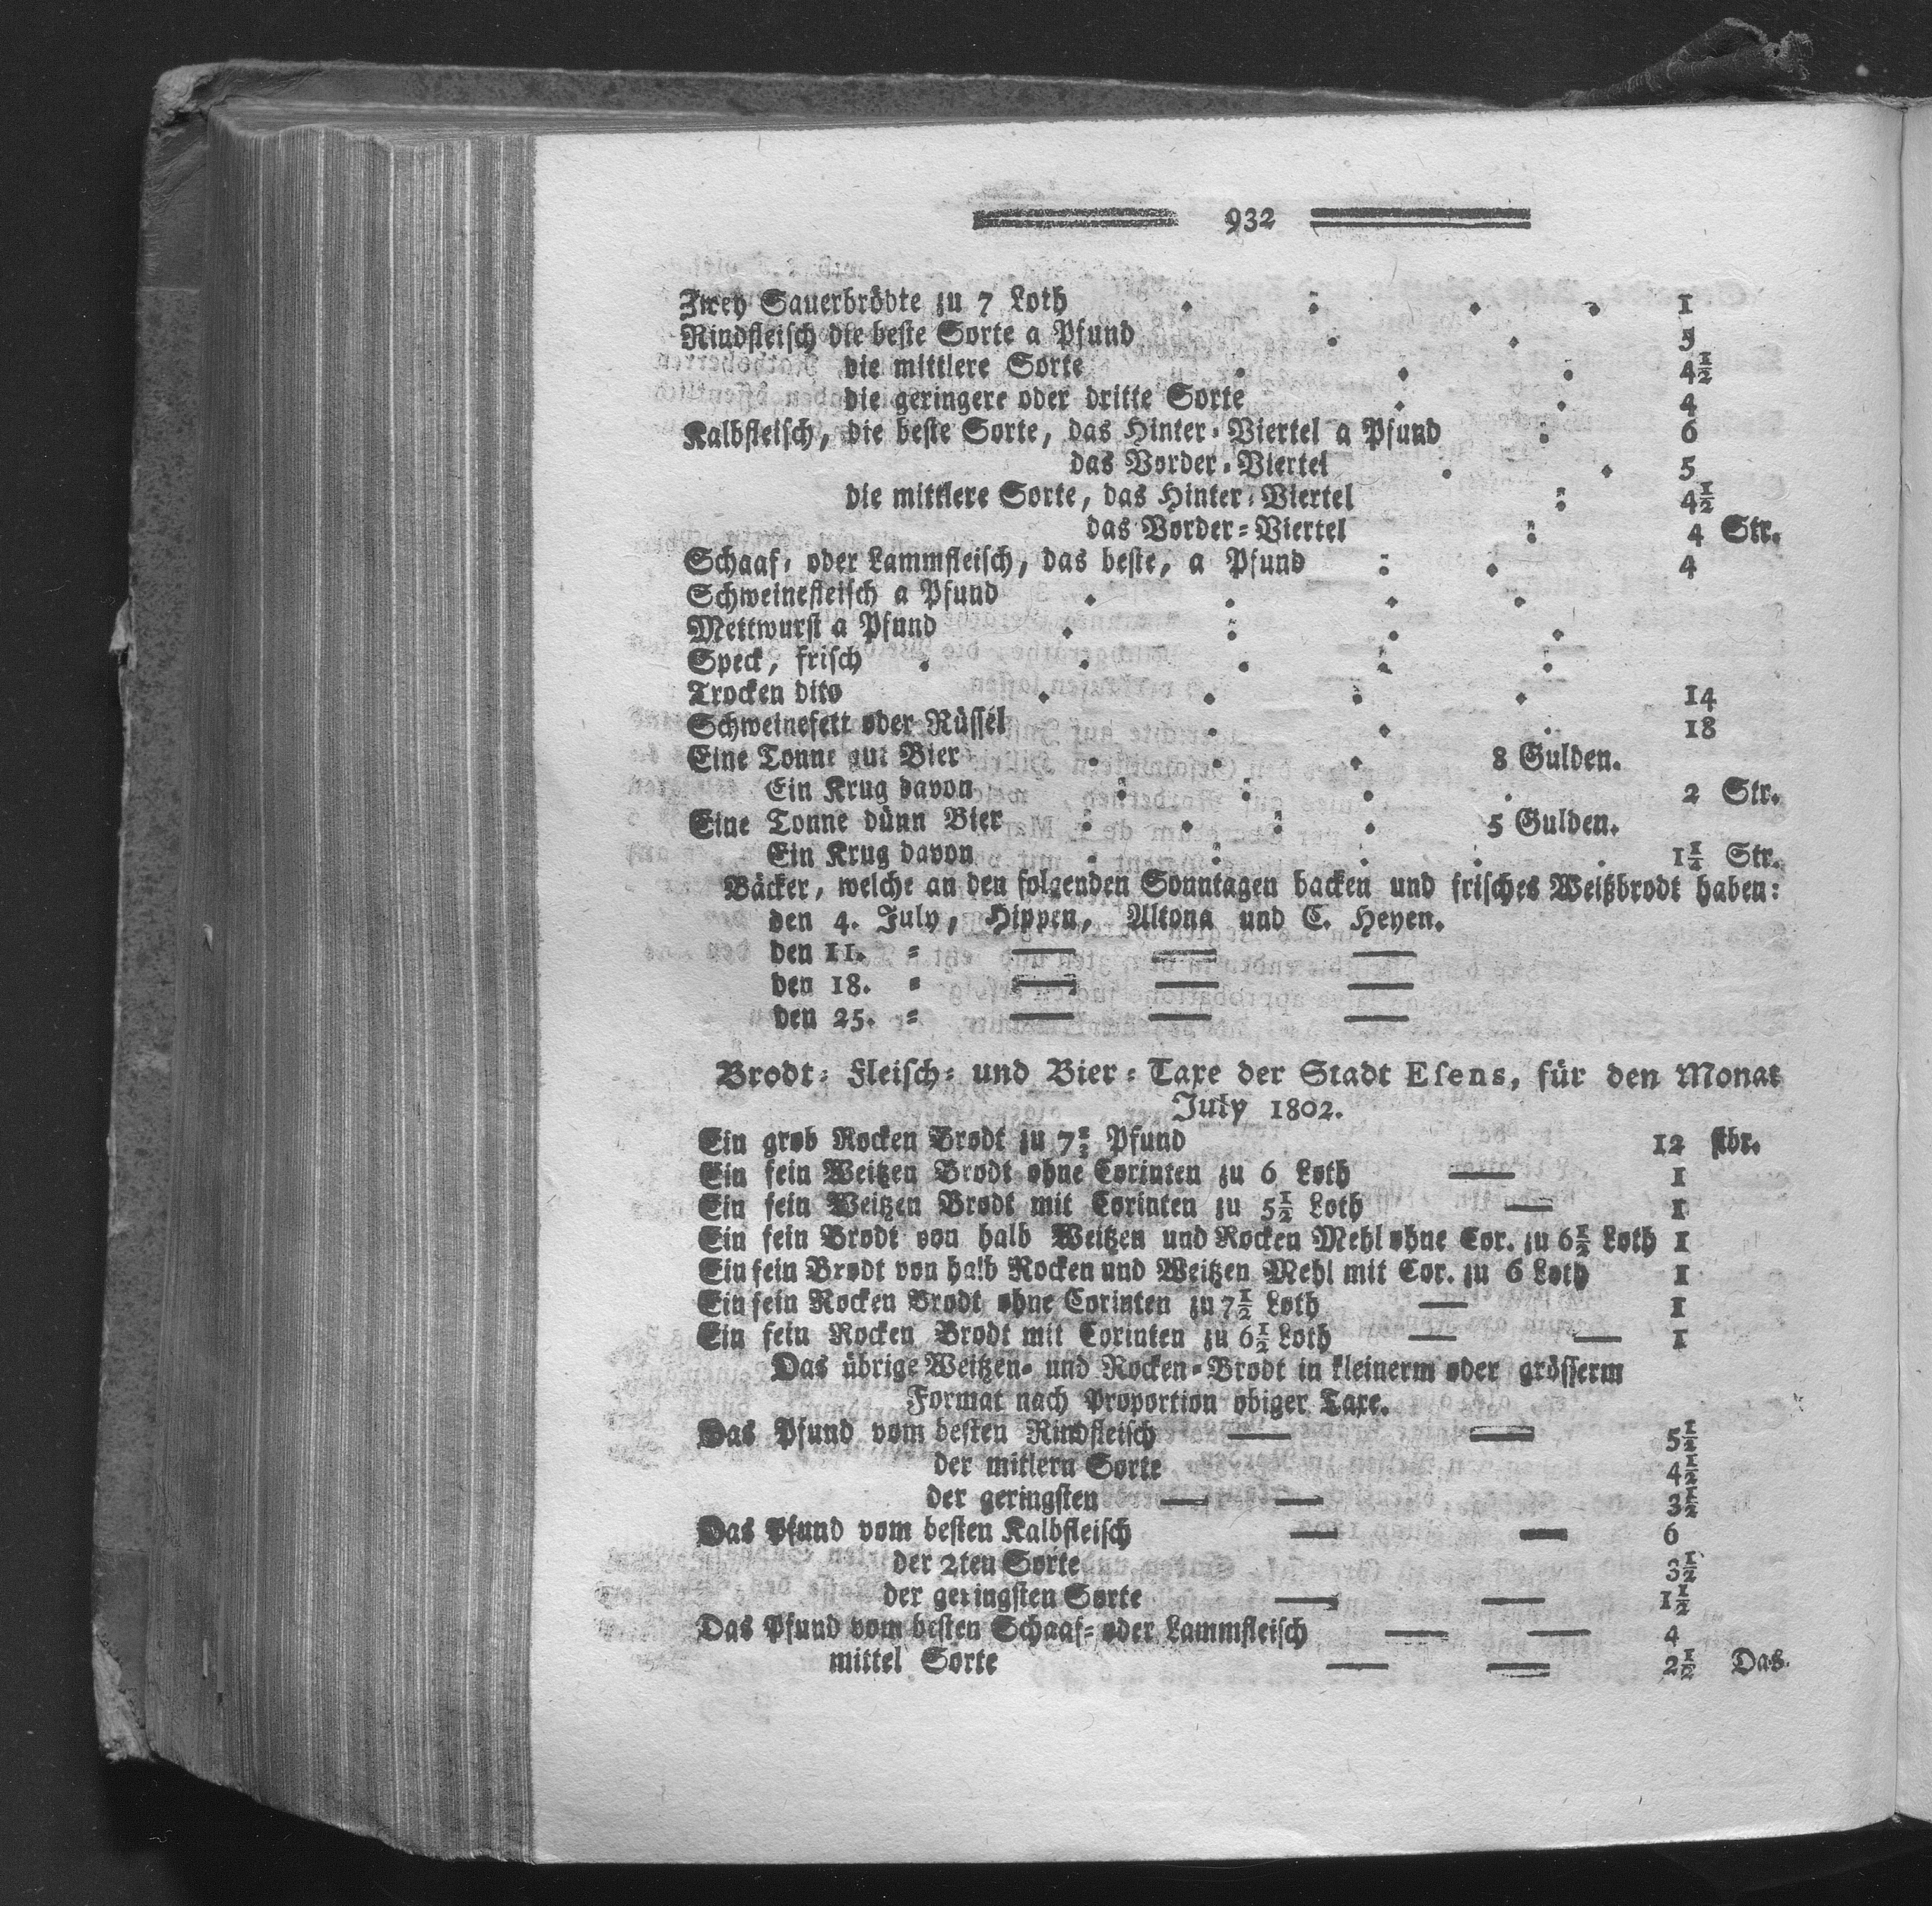 932
Zwey Sauerbrödte zu 7 Loth 1
Rindfleisch die beste Sorte a Pfund 5
die mittlere Sorte 4½
die geringere oder dritte Sorte 4
Kalbfleisch, die beste Sorte, das Hinter-Viertel a Pfund 6
das Vorder-Viertel 5
die mittlere Sorte, das Hinter-Viertel 4½
das Vorder-Viertel 4 Str.
Schaaf- oder Lammfleisch, das beste, a Pfund 4
Schweinefleisch a Pfund
Mettwurst a Pfund
Speck, frisch
Trocken dito 14
Schweinefett oder Rüssel 18
Eine Tonne gut Bier 8 Gulden.
Ein Krug davon 2 Str.
Eine Tonne dünn Bier 5 Gulden.
Ein Krug davon 1¼ Str.
Bäcker, welche an den folgenden Sonntagen backen und frisches Weißbrodt haben:
den 4. July, Hippen, Altona und C. Heyen.
den 11. = — — —
den 18. = — — —
den 25. = — — —
Brodt- Fleisch- und Bier-Taxe der Stadt Esens, für den Monat
July 1802.
Ein grob Rocken Brodt zu Pfund 12 stbr.
Ein fein Weitzen Brodt ohne Corinten zu 6 Loth — 1
Ein fein Weitzen Brodt mit Corinten zu 5½ Loth — 1
Ein fein Brodt von halb Weitzen und Rocken Mehl ohne Cor. zu 6½ Loth 1
Ein fein Brodt von halb Rocken und Weitzen Mehl mit Cor. zu 6 Loth 1
Ein fein Rocken Brodt ohne Corinten zu 7½ Loth — 1
Ein fein Rocken Brodt mit Corinten zu 6½ Loth — — 1
Das übrige Weitzen- und Rocken-Brodt in kleinerm oder grösserm
Format nach Proportion obiger Taxe.
Das Pfund vom besten Rindfleisch — — 5½
der mitlern Sorte 4½
der geringsten — — 3½
Das Pfund vom besten Kalbfleisch — — 6
der 2ten Sorte 3½
der geringsten Sorte — — 1½
Das Pfund vom besten Schaaf- oder Lammfleisch — — 4
mittel Sorte — — 2½ Das